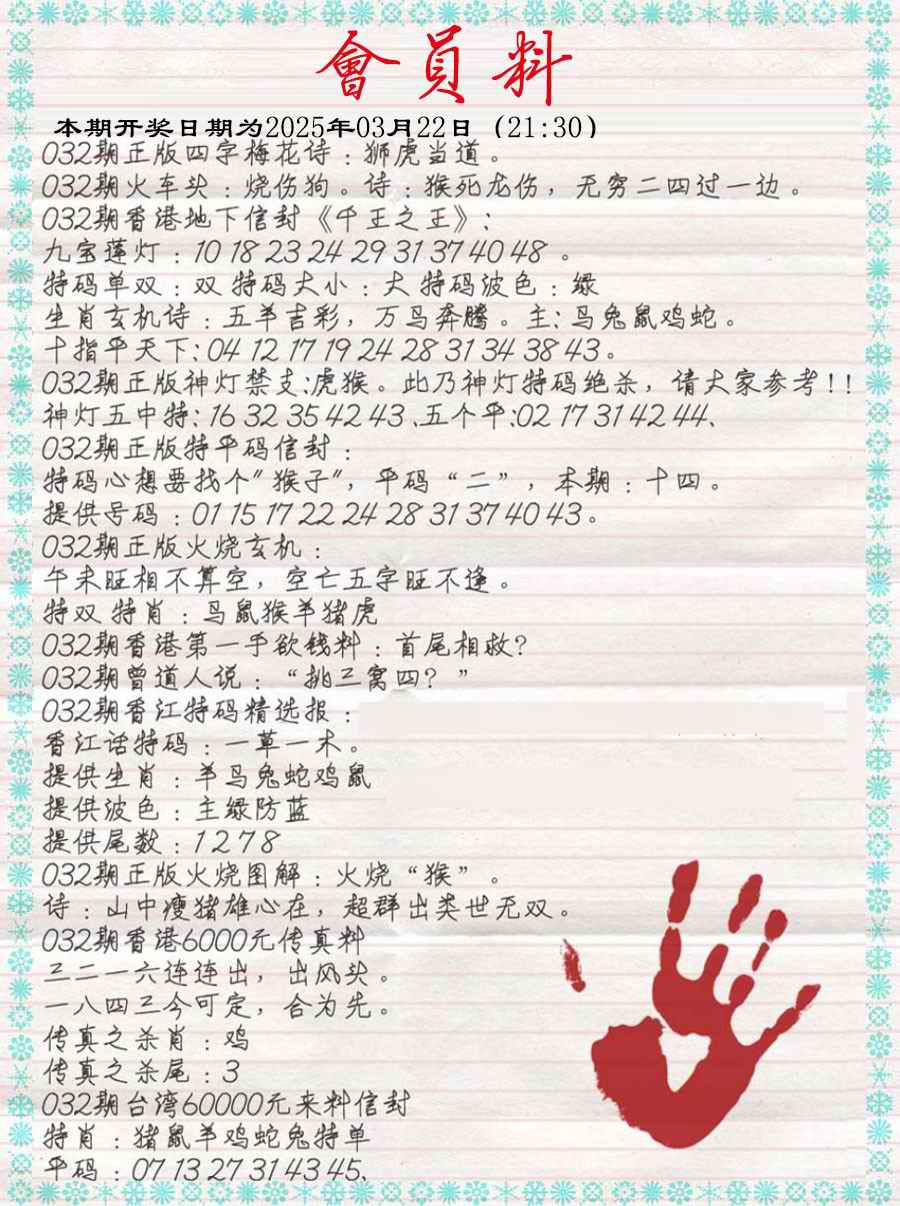 會員料
本期开奖日期为2025年03月22日（21:30）
032期正版四字梅花诗：狮虎当道。
032期火车头：烧伤狗。诗：猴死龙伤，无穷二四过一边。
032期香港地下信封《千王之王》：
九宝莲灯：10 18 23 24 29 31 37 40 48 。
特码单双：双 特码大小：大 特码波色：绿
生肖玄机诗：五羊吉彩，万马奔腾。主：马兔鼠鸡蛇。
十指平天下：04 12 17 19 24 28 31 34 38 43。
032期正版神灯禁支：虎猴。此乃神灯特码绝杀，请大家参考！！
神灯五中特：16 32 35 42 43 、五个平：02 17 31 42 44、
032期正版特平码信封：
特码心想要找个"猴子"，平码“二”，本期：十四。
提供号码：01 15 17 22 24 28 31 37 40 43。
032期正版火烧玄机：
午未旺相不算空，空亡五字旺不逢。
特双 特肖：马鼠猴羊猪虎
032期香港第一手欲钱料：首尾相救？
032期曾道人说：“挑三窝四？”
032期香江特码精选报：
香江话特码：一草一木。
提供生肖：羊马兔蛇鸡鼠
提供波色：主绿防蓝
提供尾数：1 2 7 8
032期正版火烧图解：火烧“猴”。
诗：山中瘦猪雄心在，超群出类世无双。
032期香港6000元传真料
三二一六连连出，出风头。
一八四三今可定，合为先。
传真之杀肖：鸡
传真之杀尾：3
032期台湾60000元来料信封
特肖：猪鼠羊鸡蛇兔特单
平码：07 13 27 31 43 45、